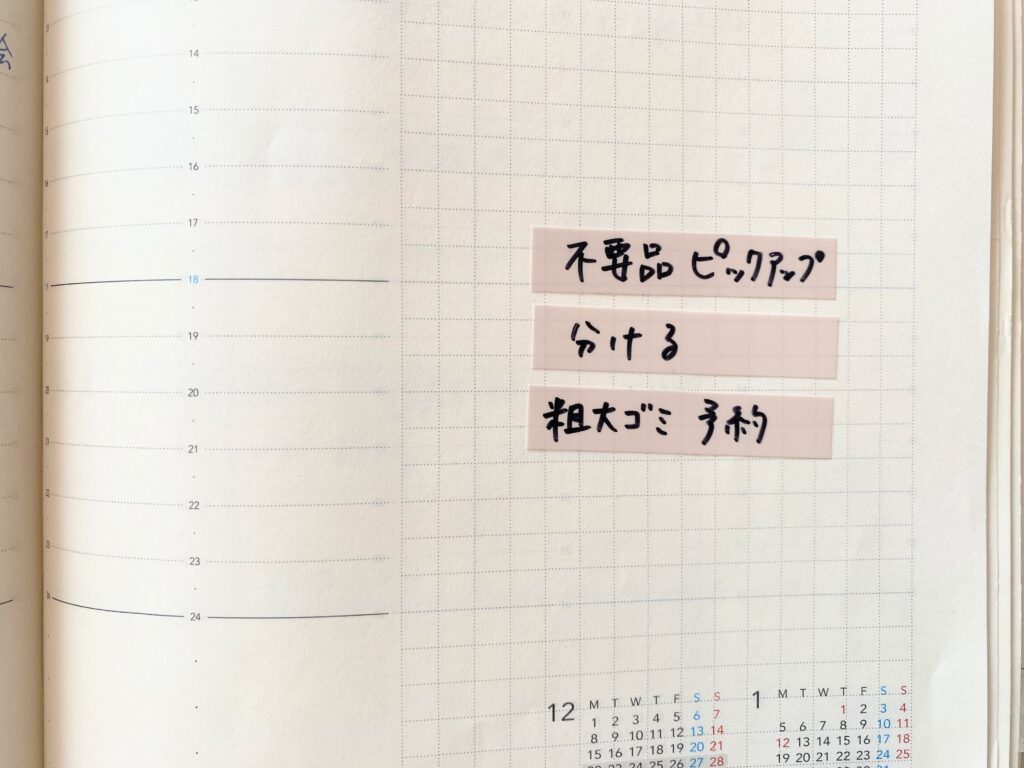 絵
14
15
16
17
18
19
20
21
22
23
24
不要品 ピックアップ
分ける
粗大ゴミ 予約
12
M T W T F S S
1 2 3 4 5 6 7
8 9 10 11 12 13 14
15 16 17 18 19 20 21
22 23 24 25 26 27 28
1
M T W T F S S
1 2 3 4
5 6 7 8 9 10 11
12 13 14 15 16 17 18
19 20 21 22 23 24 25